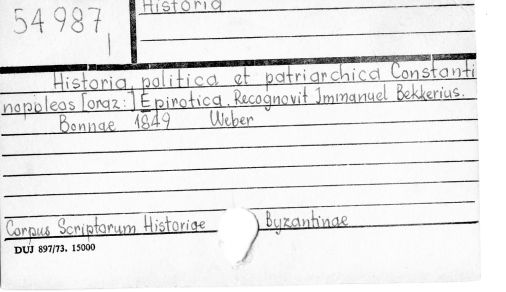 54987, Historia
I
Historia politica et patriarchica Constanti
nopoleos [oraz:] Epirotica. Recognovit Immanuel Bekkerius.
Bonnae 1849 Weber
Corpus Scriptorum Historiae Byzantinae
DUJ 897/73. 15000